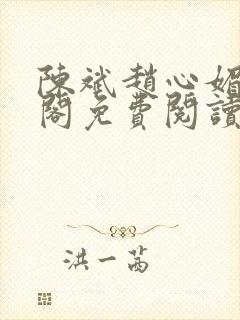 陳斌趙心媚
閣免費閱讀
洪一茜